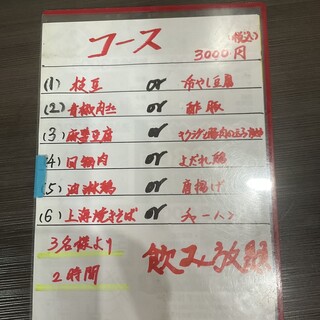 コース
(税込)
3000円
(1) 枝豆 or 冷やし豆腐
(2) 青椒肉絲 or 酢豚
(3) 麻婆豆腐 or キクラゲと豚肉の玉子
(4) 回鍋肉 or よだれ鶏
(5) 油淋鶏 or 唐揚げ
(6) 上海焼きそば or チャーハン
3名様より
2時間
飲み放題